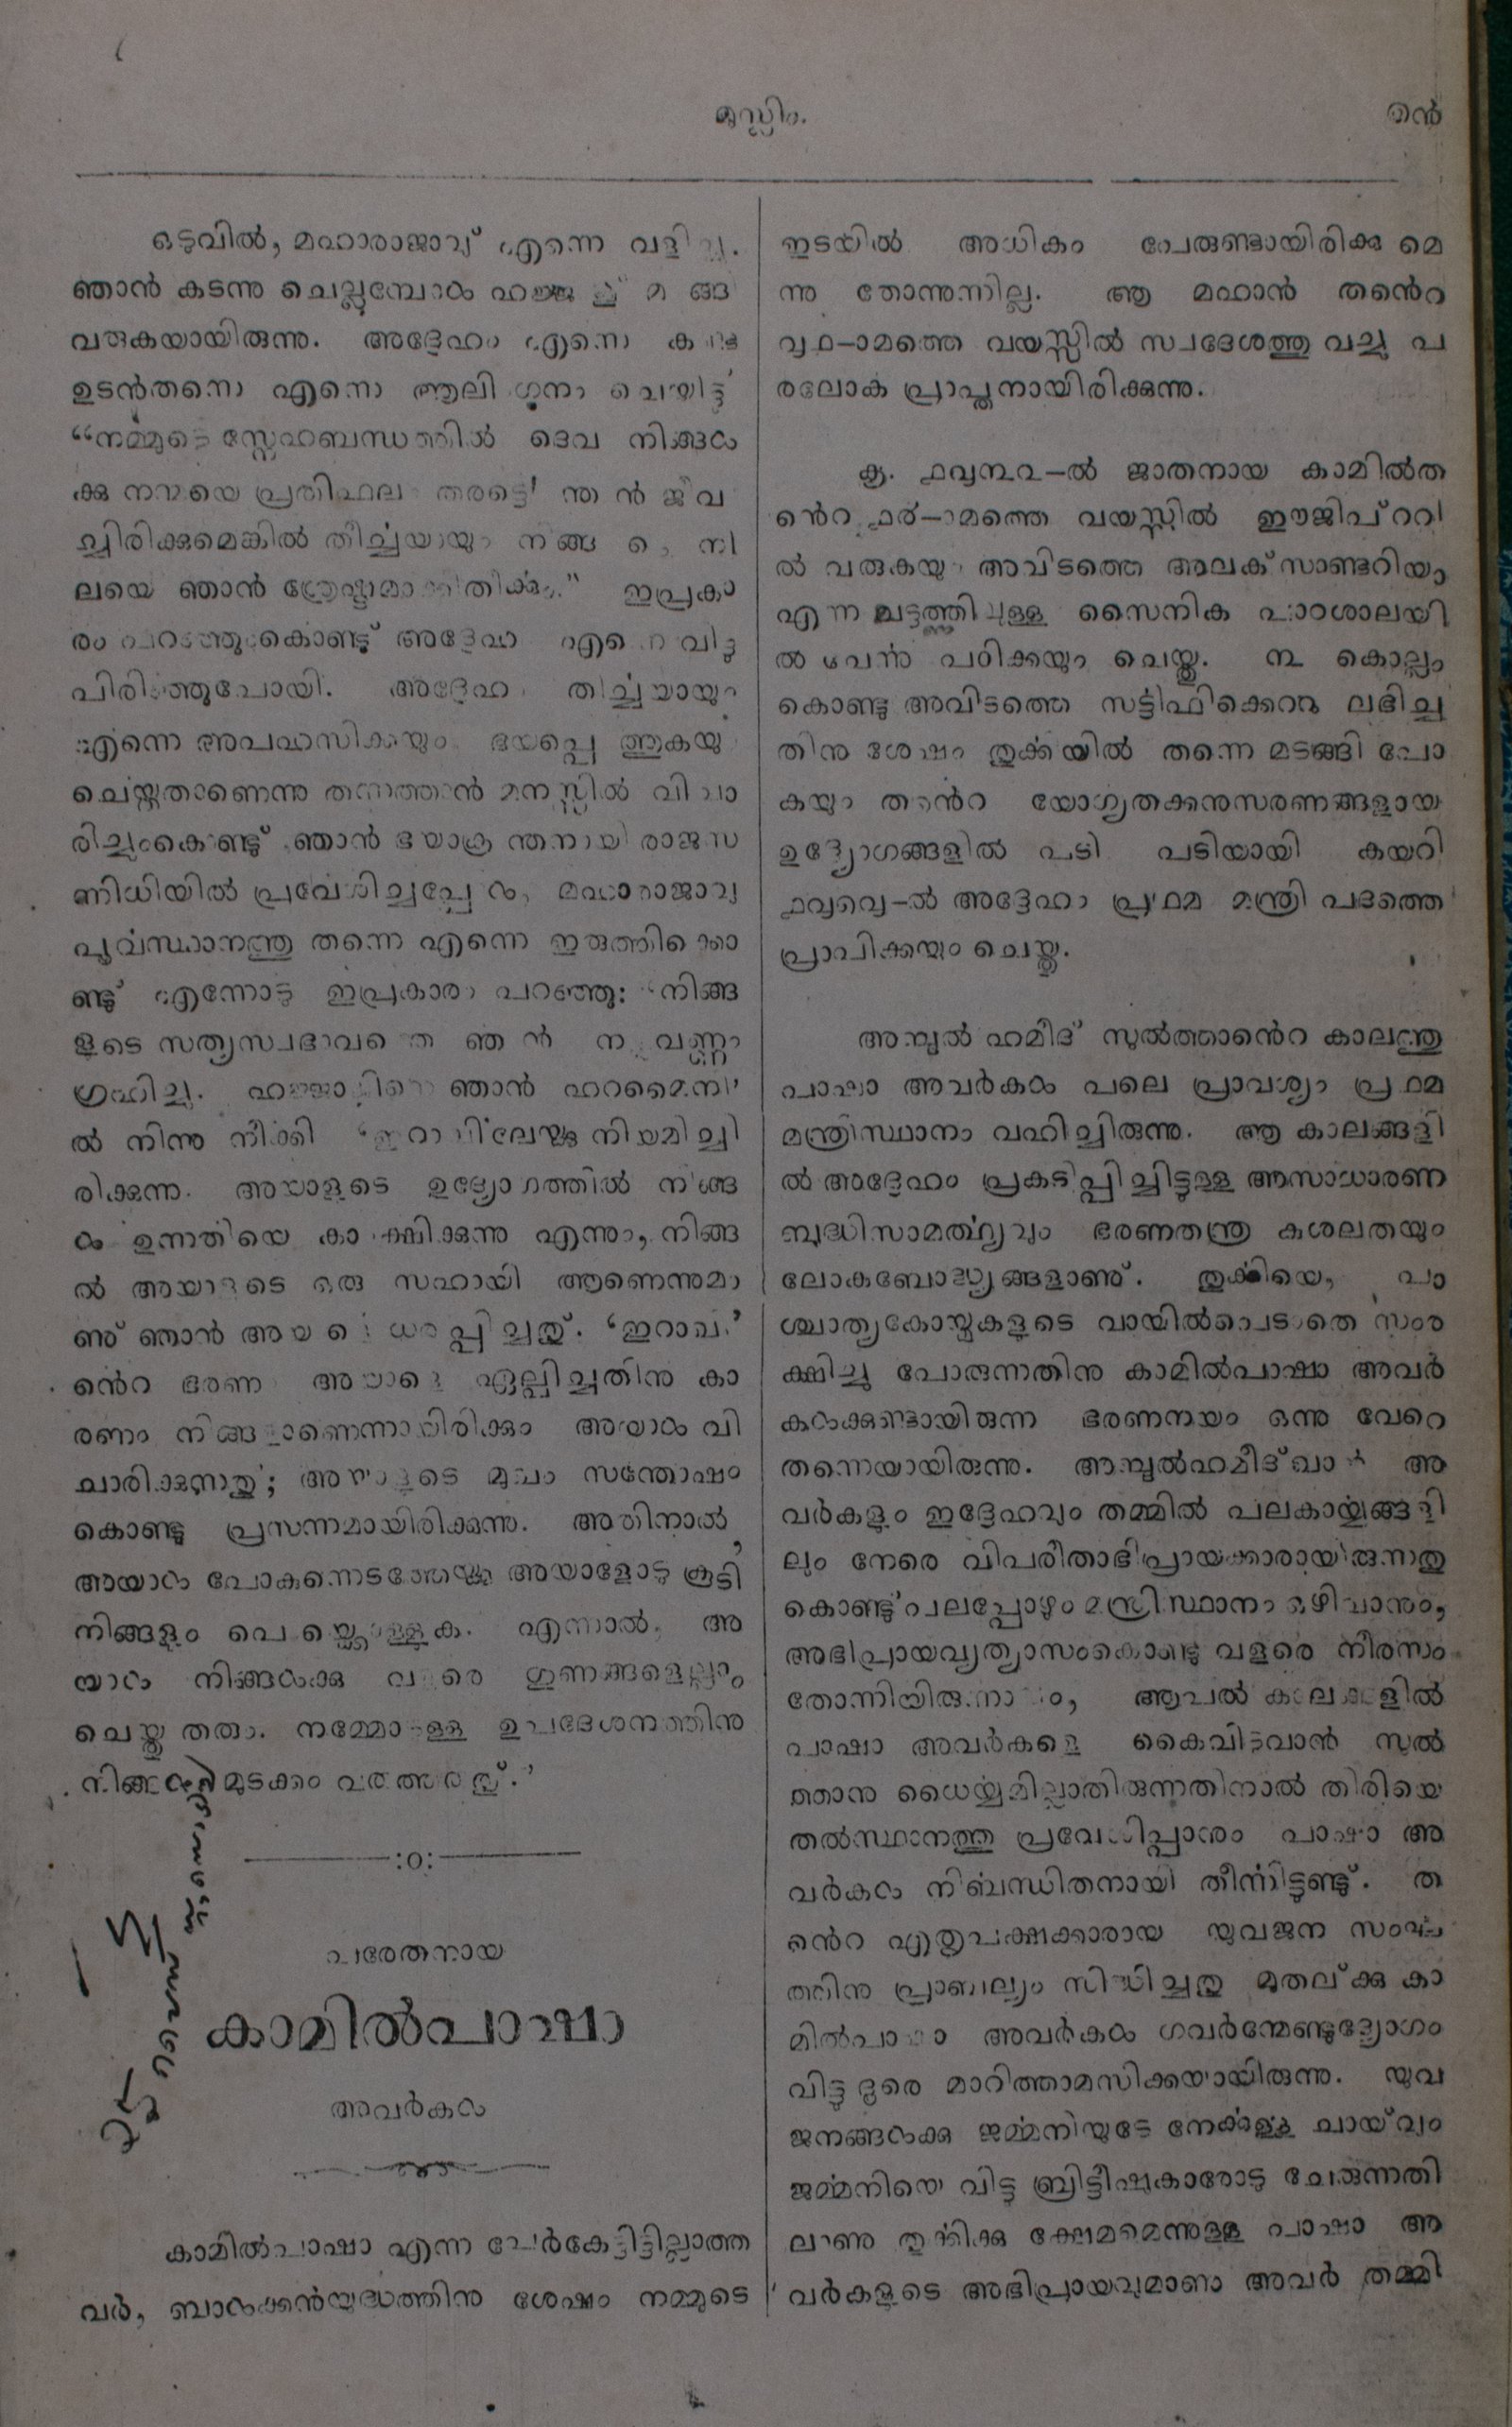 മുസ്ലിം.
ഒടുവിൽ, മഹാരാജാവ് എന്നെ
ഞാൻ കടന്നു ചെല്ലുമ്പോൾ
വരുകയായിരുന്നു. അദ്ദേഹം എന്നെ
ഉടൻതന്നെ എന്നെ ആലിംഗനം ചെയ്തിട്ട്
“നമ്മുടെ സ്നേഹബന്ധത്തിൽ ദൈവ നിങ്ങൾ
ക്കു നന്മയെ പ്രതിഫലം തരട്ടെ! ജീവ
ച്ചിരിക്കുമെങ്കിൽ തീർച്ചയായും നി
ലയെ ഞാൻ ഇപ്രകാ
രം പറഞ്ഞുംകൊണ്ടു് അദ്ദേഹം എന്നെ വിട്ടു
പിരിഞ്ഞുപോയി. അദ്ദേഹം തീർച്ചയായും
എന്നെ അപഹസിക്കയും ഭയപ്പെടുത്തുകയും
ചെയ്തതാണെന്നു തന്നത്താൻ മനസ്സിൽ വിചാ
രിച്ചുംകൊണ്ടു് ഞാൻ ഭയാക്രാന്തനായി രാജസ
ന്നിധിയിൽ പ്രവേശിച്ചപ്പോൾ, മഹാരാജാവു
പൂൎവ്വസ്ഥാനത്തു തന്നെ എന്നെ ഇരുത്തിക്കൊ
ണ്ടു് എന്നോടു ഇപ്രകാരം പറഞ്ഞു: ‘നിങ്ങ
ളുടെ സത്യസ്വഭാവത്തെ ഞാൻ നല്ലവണ്ണം
ഗ്രഹിച്ചു. ഹജ്ജാജിനെ ഞാൻ ഹറമൈനി
ൽ നിന്നു നീക്കി ‘ഇറാഖി’ലേയ്ക്കു നിയമിച്ചി
രിക്കുന്നു. അയാളുടെ ഉദ്യോഗത്തിൽ നിങ്ങ
ൾ ഉന്നതിയെ കാംക്ഷിക്കുന്നു എന്നും, നിങ്ങ
ൽ അയാളുടെ ഒരു സഹായി ആണെന്നുമാ
ണു് ഞാൻ ‘ഇറാഖി’
ൻെറ ഭരണം അയാളെ ഏല്പിച്ചതിനു കാ
രണം നിങ്ങളാണെന്നായിരിക്കും അയാൾ വി
ചാരിക്കുന്നതു്; അയാളുടെ മുഖം സന്തോഷം
കൊണ്ടു പ്രസന്നമായിരിക്കുന്നു. അതിനാൽ,
അയാൾ പോകുന്നെടത്തേയ്ക്കു അയാളോടു കൂടി
നിങ്ങളും പൊയ്ക്കൊള്ളുക. എന്നാൽ, അ
യാൾ നിങ്ങൾക്കു വളരെ ഗുണങ്ങളെല്ലാം
ചെയ്തു തരും. നമ്മോടുള്ള ഉപദേശനത്തിനു
മുടക്കം വരുത്തരുതു്.’
:o:
പരേതനായ
കാമിൽപാഷാ
അവർകൾ
കാമിൽപാഷാ എന്ന പേർകേട്ടിട്ടില്ലാത്ത
വർ, ബാൾക്കൻയുദ്ധത്തിനു ശേഷം നമ്മുടെ
ഇടയിൽ അധികം പേരുണ്ടായിരിക്കുമെ
ന്നു തോന്നുന്നില്ല. ആ മഹാൻ തൻെറ
൮൧–ാമത്തെ വയസ്സിൽ സ്വദേശത്തു വച്ചു പ
രലോക പ്രാപ്തനായിരിക്കുന്നു.
ക്രി. ൧൮൩൨–ൽ ജാതനായ കാമിൽത
ൻെറ വയസ്സിൽ ഈജിപ്ററി
ൽ വരുകയും അവിടത്തെ അലക്സാണ്ടറിയാ
എന്ന പട്ടണത്തിലുള്ള സൈനിക പാഠശാലയി
ൽ ചേൎന്നു പഠിക്കയും ചെയ്തു. ൩ കൊല്ലം
കൊണ്ടു അവിടത്തെ സട്ടിഫിക്കെററു ലഭിച്ച
തിനു ശേഷം തുൎക്കിയിൽ തന്നെ മടങ്ങി പോ
കയും തൻെറ യോഗ്യതക്കനുസരണങ്ങളായ
ഉദ്യോഗങ്ങളിൽ പടി പടിയായി കയറി
അദ്ദേഹം പ്രഥമ മന്ത്രി പദത്തെ
പ്രാപിക്കയും ചെയ്തു.
അബ്ദുൽ ഹമീദ് സുൽത്താൻെറ കാലത്തു
പാഷാ അവർകൾ പലെ പ്രാവശ്യം പ്രഥമ
മന്ത്രിസ്ഥാനം വഹിച്ചിരുന്നു. ആ കാലങ്ങളി
ൽ അദ്ദേഹം പ്രകടിപ്പിച്ചിട്ടുള്ള അസാധാരണ
ബുദ്ധിസാമൎത്ഥ്യവും ഭരണതന്ത്ര കുശലതയും
ലോകബോദ്ധ്യങ്ങളാണു്. തുൎക്കിയെ, പാ
ശ്ചാത്യകോയ്മകളുടെ വായിൽപെടാതെ സംര
ക്ഷിച്ചു പോരുന്നതിനു കാമിൽപാഷാ അവർ
കൾക്കുണ്ടായിരുന്ന ഭരണനയം ഒന്നു വേറെ
തന്നെയായിരുന്നു. അബ്ദുൽഹമീദ്ഖാൻ അ
വർകളും ഇദ്ദേഹവും തമ്മിൽ പലകാൎയ്യങ്ങളി
ലും നേരെ വിപരീതാഭിപ്രായക്കാരായിരുന്നതു
കൊണ്ടു് പലപ്പോഴും മന്ത്രിസ്ഥാനം ഒഴിവാനും,
അഭിപ്രായവ്യത്യാസംകൊണ്ടു വളരെ നീരസം
തോന്നിയിരുന്നാലും, ആപൽ കാലങ്ങളിൽ
പാഷാ അവർകളെ കൈവിടുവാൻ സുൽ
ത്താനു ധൈൎയ്യമില്ലാതിരുന്നതിനാൽ തിരിയെ
തൽസ്ഥാനത്തു പ്രവേശിപ്പാനും പാഷാ അ
വർകൾ നിൎബന്ധിതനായി തീൎന്നിട്ടുണ്ടു്. ത
ൻെറ എതൃപക്ഷക്കാരായ യുവജന സംഘ
ത്തിനു പ്രാബല്യം സിദ്ധിച്ചതു മുതല്ക്കു കാ
മിൽപാഷാ അവർകൾ ഗവർന്മേണ്ടുദ്യോഗം
വിട്ടു ദൂരെ മാറിത്താമസിക്കയായിരുന്നു. യുവ
ജനങ്ങൾക്കു ജൎമ്മനിയുടേ നേൎക്കുള്ള ചായ്‌വും
ജൎമ്മനിയെ വിട്ടു ബ്രിട്ടീഷുകാരോടു ചേരുന്നതി
ലാണു തുൎക്കിക്കു ക്ഷേമമെന്നുള്ള പാഷാ അ
വർകളുടെ അഭിപ്രായവുമാണു അവർ തമ്മി